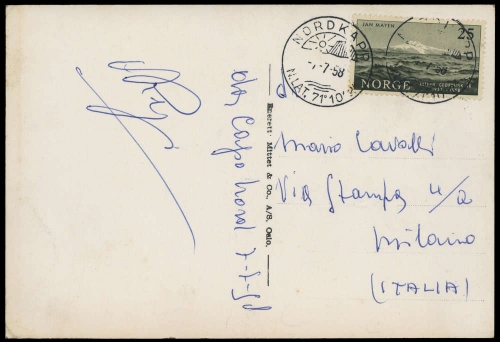 NORDKAPP
-7-7-58
N.LAT. 71°10'
JAN MAYEN
25
NORGE
Da Capo Nord 7-7-58
Enerett: Mittet & Co., A/S, Oslo.
Mario Cavalli
Via Stampa 4/a
Milano
(ITALIA)